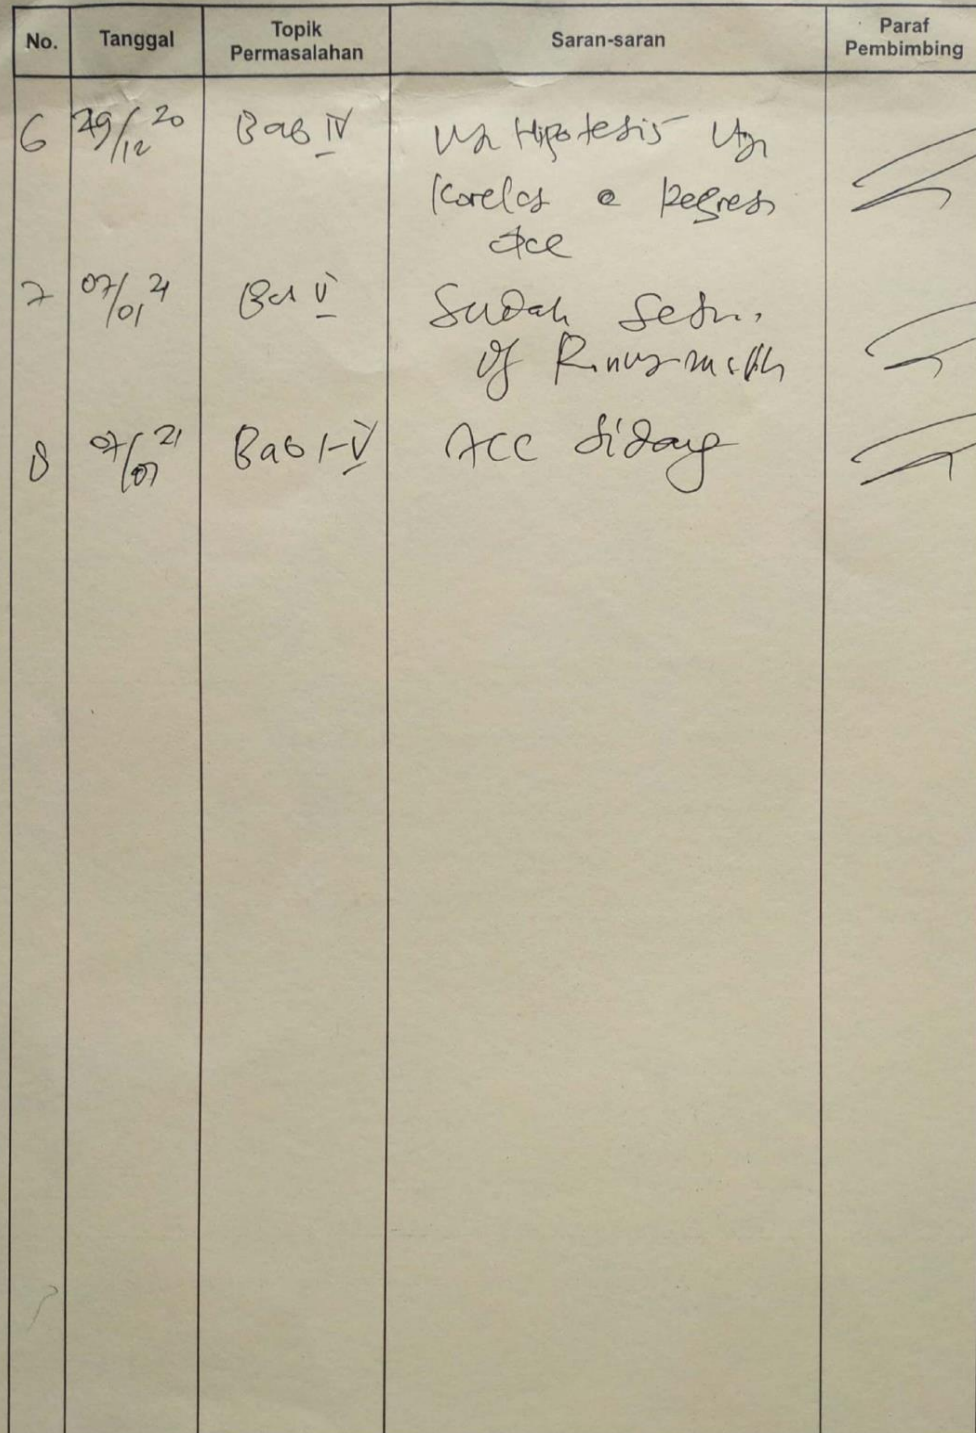 No. Tanggal Topik Permasalahan Saran-saran Paraf Pembimbing
6 29/12 20 Bab IV Uji Hipotesis Uji
Korelasi & Regresi
acc
7 07/01 21 Bab V Sudah Sesuai
8 07/01 21 Bab I-V ACC Sidang